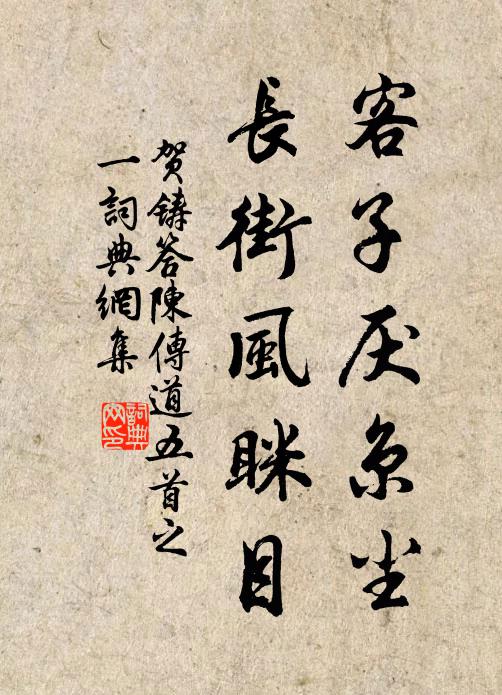 客子厌京尘
長街風眯目
贺鑄答陳傳道五首之
一詞典網集
詞典网印